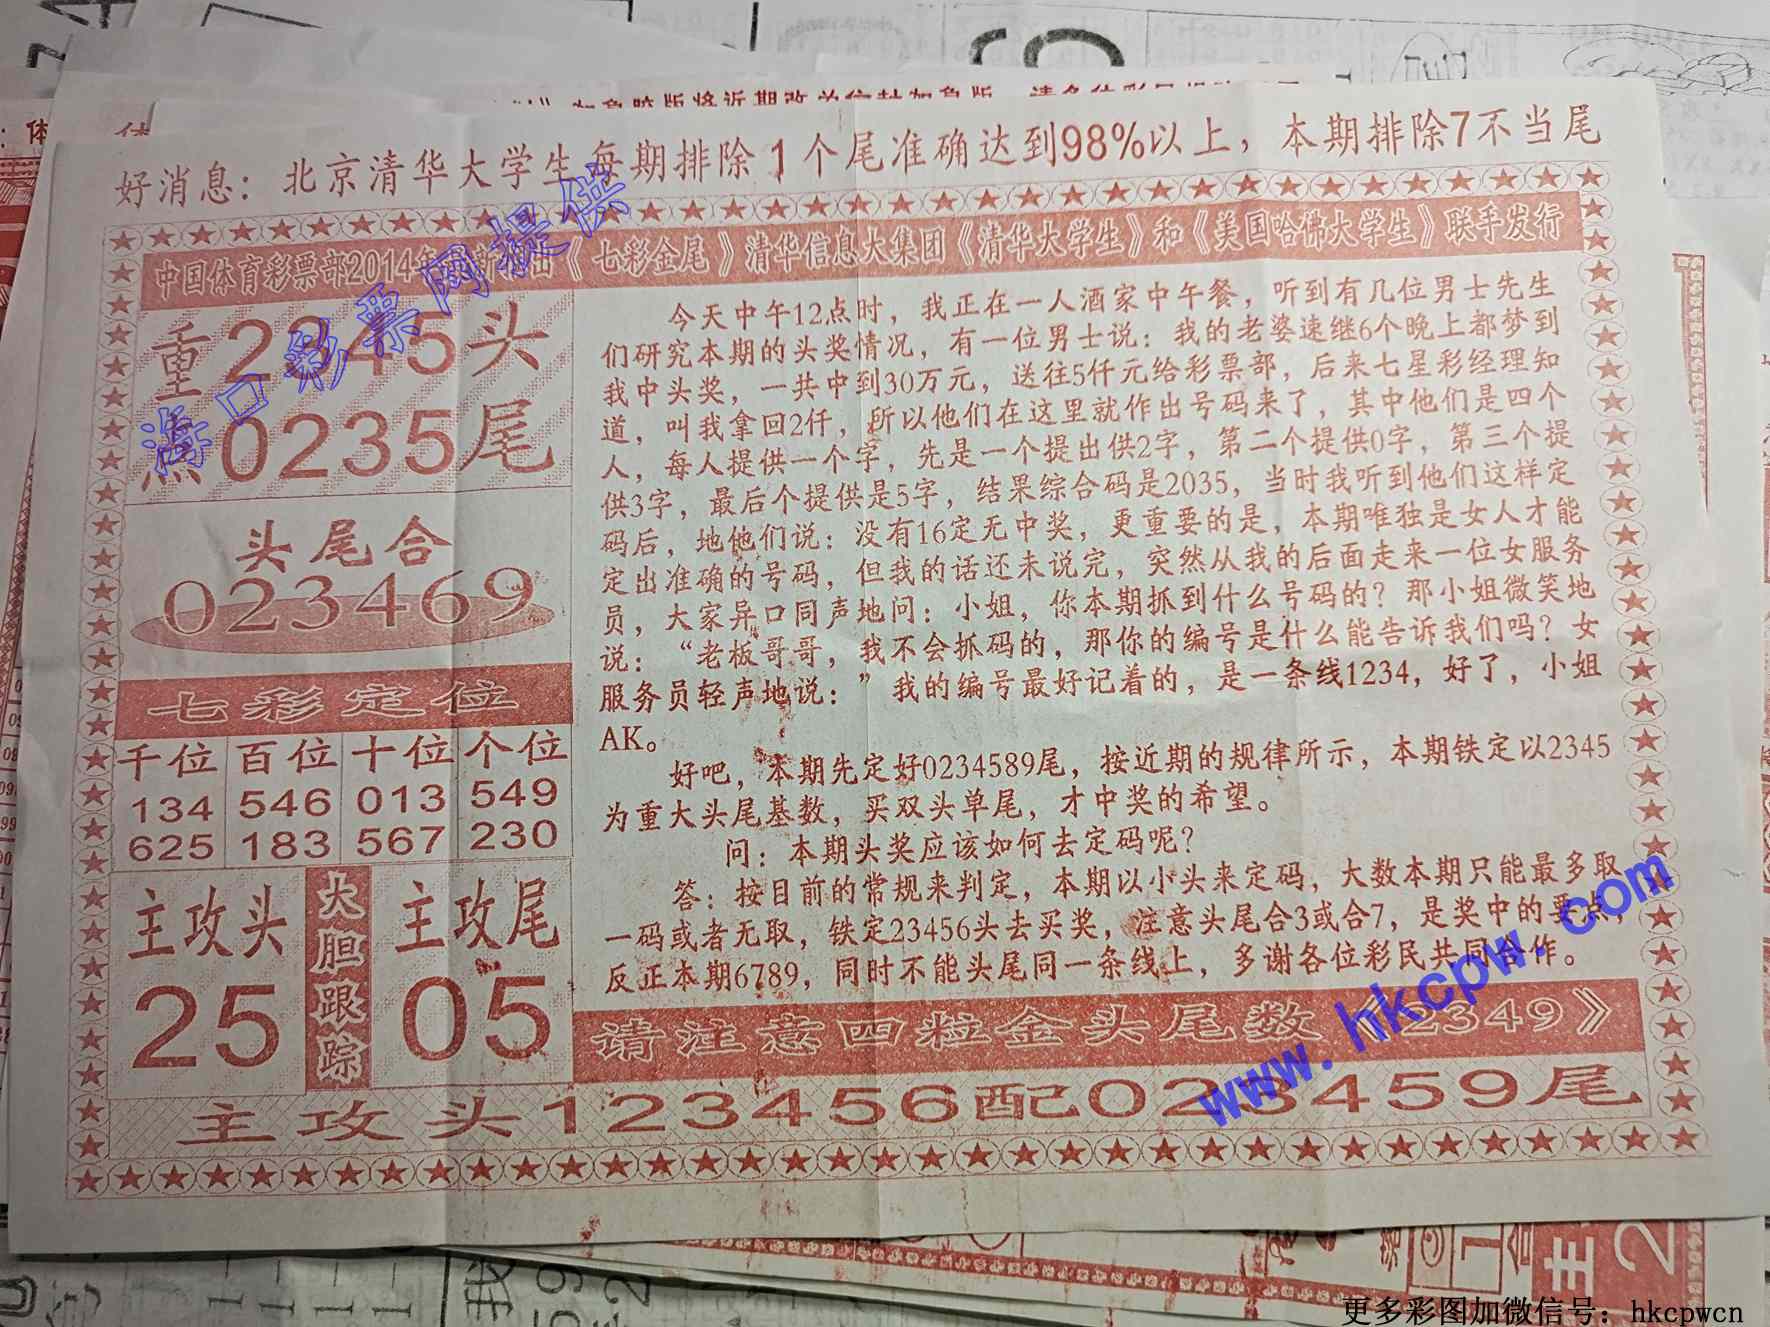 好消息：北京清华大学生每期排除1个尾准确达到98%以上，本期排除7不当尾
中国体育彩票部2014年 新 出《七彩金尾》清华信息大集团《清华大学生》和《美国哈佛大学生》联手发行
重2345头
点0235尾
头尾合
023469
七彩定位
千位 百位 十位 个位
134 546 013 549
625 183 567 230
主攻头
25
大胆跟踪
主攻尾
05
今天中午12点时，我正在一人酒家中午餐，听到有几位男士先生
们研究本期的头奖情况，有一位男士说：我的老婆速继6个晚上都梦到
我中头奖，一共中到30万元，送往5仟元给彩票部，后来七星彩经理知
道，叫我拿回2仟，所以他们在这里就作出号码来了，其中他们是四个
人，每人提供一个字，先是一个提出供2字，第二个提供0字，第三个提
供3字，最后个提供是5字，结果综合码是2035，当时我听到他们这样定
码后，地他们说：没有16定无中奖，更重要的是，本期唯独是女人才能
定出准确的号码，但我的话还未说完，突然从我的后面走来一位女服务
员，大家异口同声地问：小姐，你本期抓到什么号码的？那小姐微笑地
说：“老板哥哥，我不会抓码的，那你的编号是什么能告诉我们吗？女
服务员轻声地说：”我的编号最好记着的，是一条线1234，好了，小姐
AK。
好吧，本期先定好0234589尾，按近期的规律所示，本期铁定以2345
为重大头尾基数，买双头单尾，才中奖的希望。
问：本期头奖应该如何去定码呢？
答：按目前的常规来判定，本期以小头来定码，大数本期只能最多取
一码或者无取，铁定23456头去买奖，注意头尾合3或合7，是奖中的要点，
反正本期6789，同时不能头尾同一条线上，多谢各位彩民共同合作。
请注意四粒金头尾数《2349》
主攻头123456配023459尾
海口彩票网提供
www.hkcpw.com
更多彩图加微信号：hkcpwcn